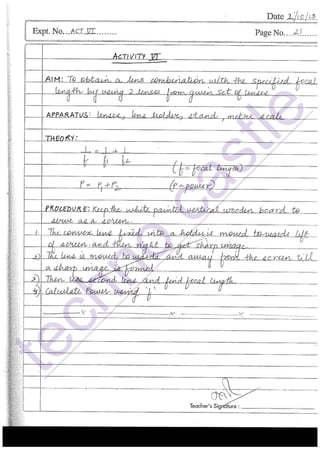 Date 2/10/13
Expt. No. ACT VI
Page No. 21
ACTIVITY VI
AIM: To obtain a lens combination with the specified focal
length by using 2 lenses from given set of lenses.
APPARATUS: lenses, lens holder, stand, metre scale
THEORY:
1/f = 1/f1 + 1/f2
(f = focal length)
P = P1 + P2 (P = power)
PROCEDURE: Keep the white painted vertical wooden board to
serve as a screen.
1) The convex lens fixed into a holder is moved towards left
of screen and then right to get sharp image
2) The lens is moved towards and away from the screen till
a sharp image is formed
3) Then use second lens and find focal length
4) Calculate Power using 'f'
x x x
Teacher's Signature :